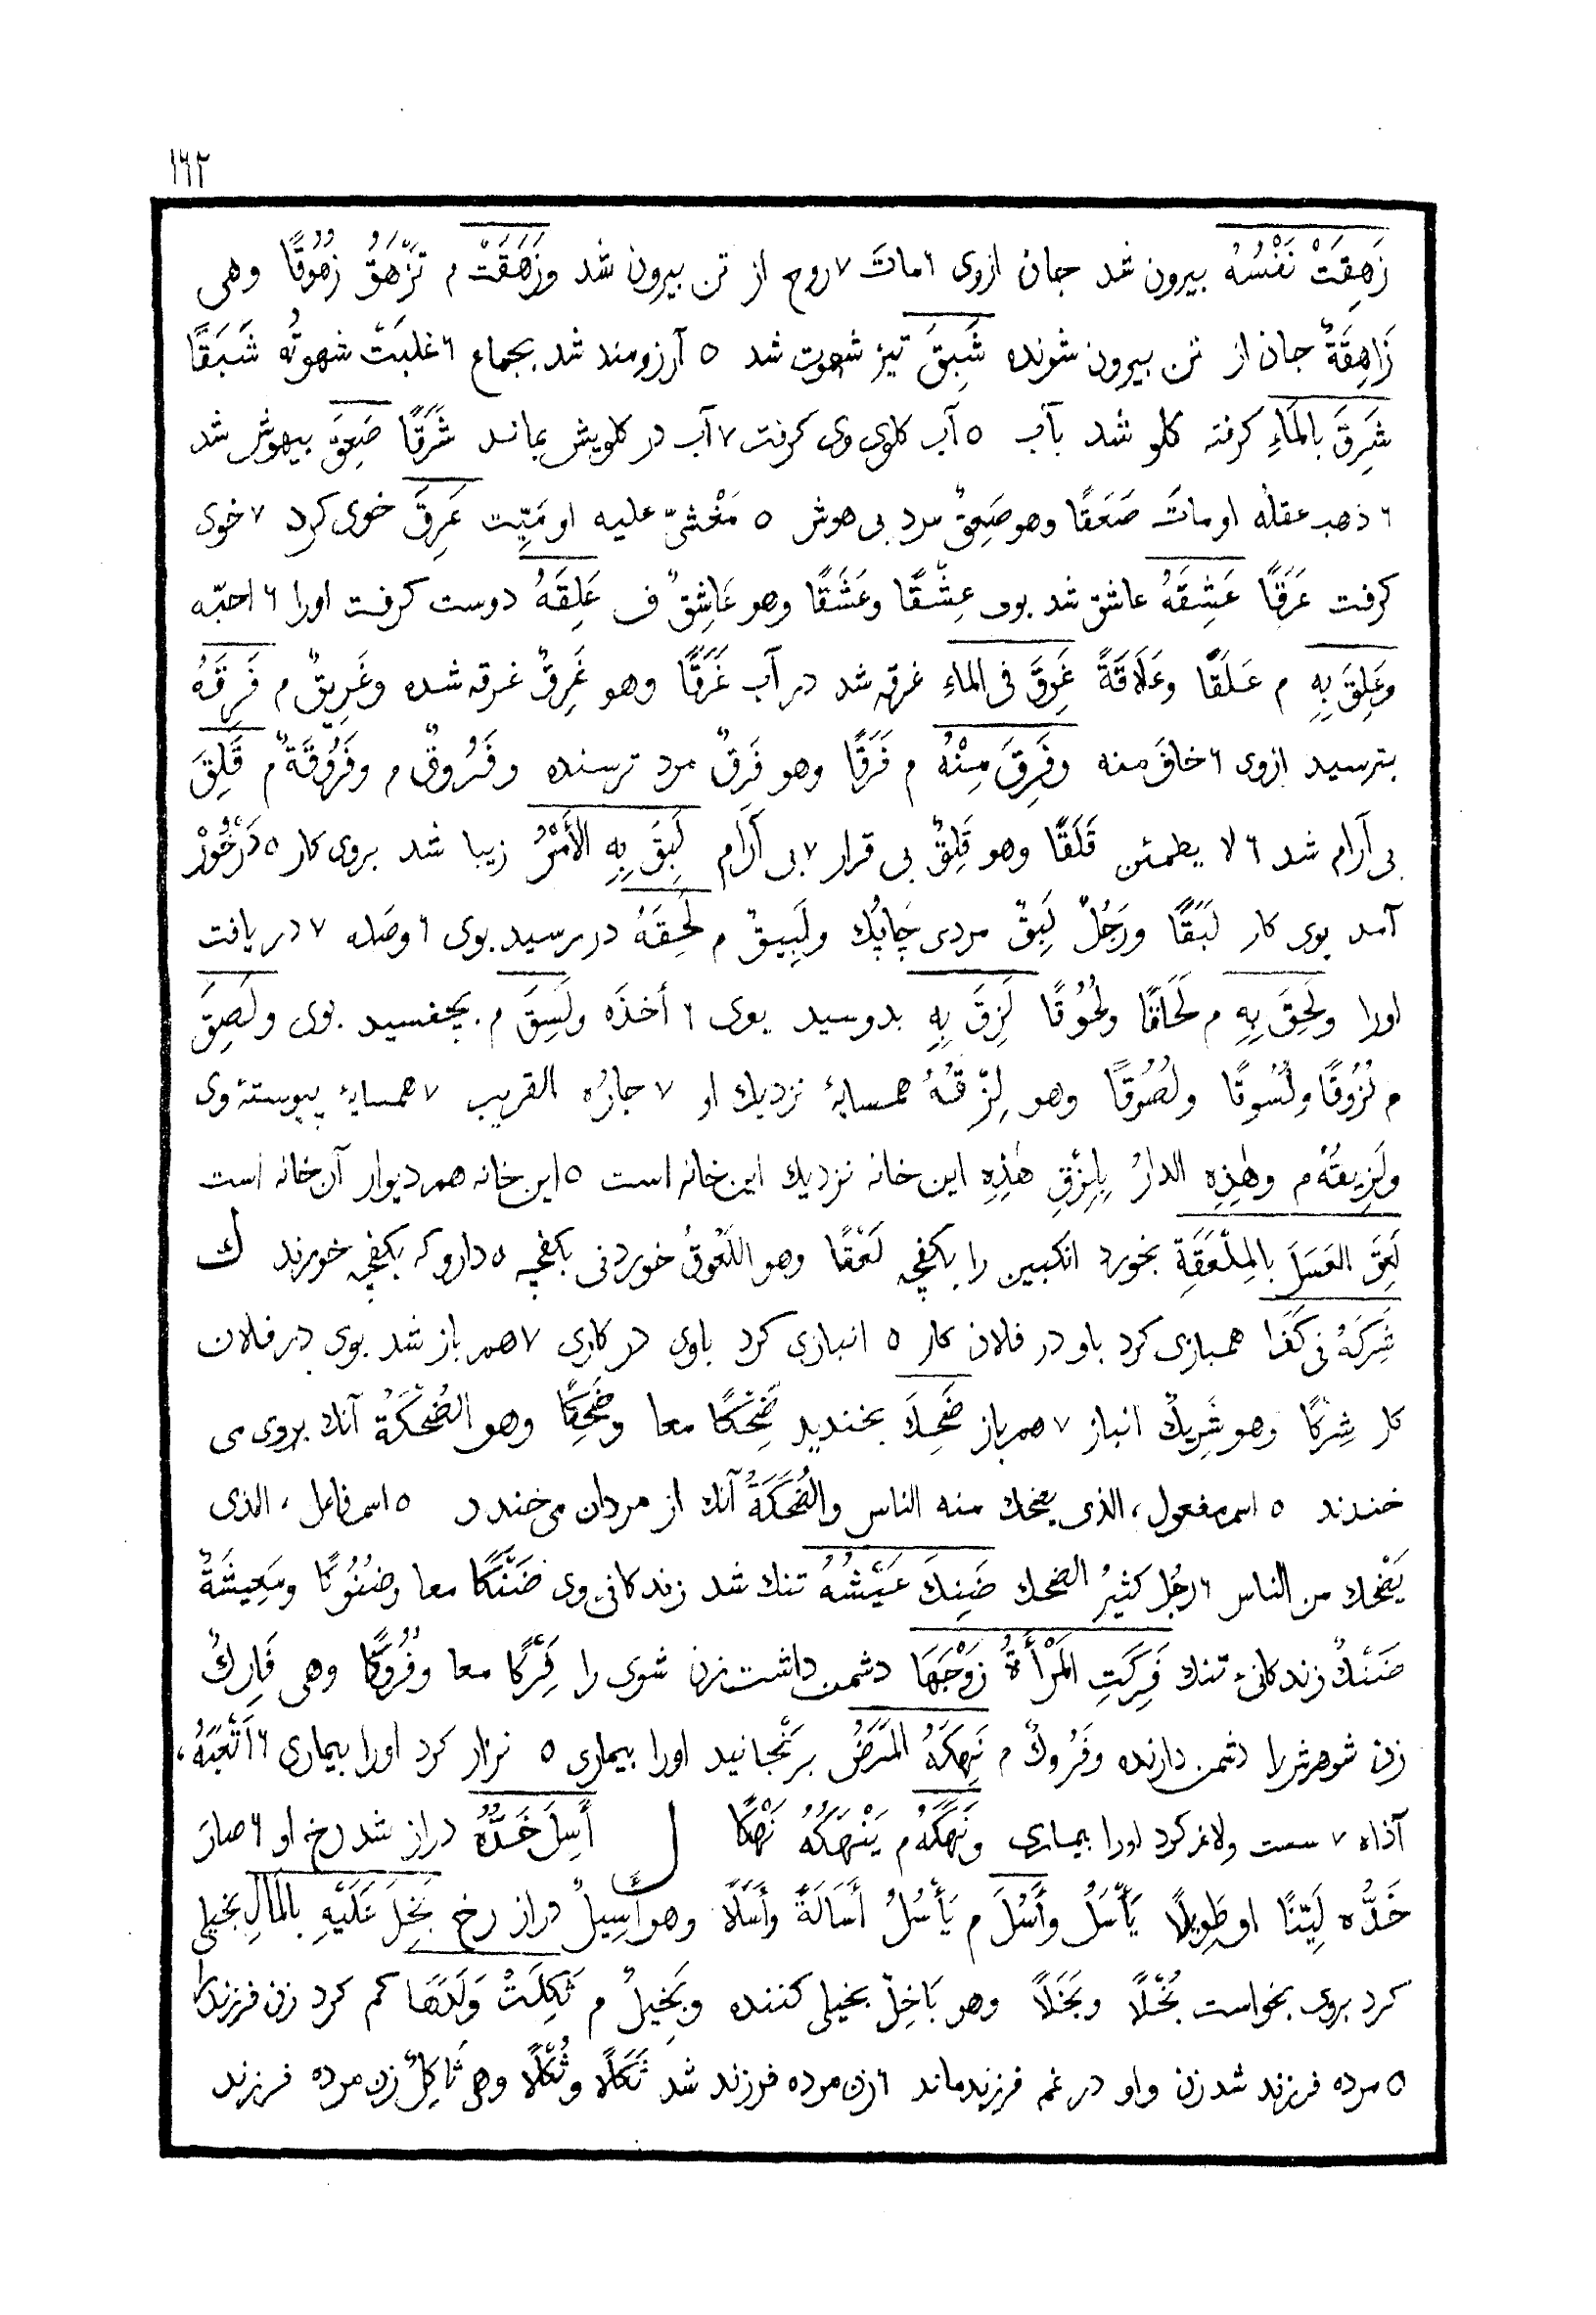 ١٦٢
زَهِقَتْ نَفْسُهُ بیرون شد جان ازوی ٦ ماتَ ٧ روح از تن بیرون شد وزَهَقَتْ م تَزْهَقُ زُهُوقًا وهی
زَاهِقَةٌ جان از تن بیرون شونده شَبِقَ تیز شهوت شد ٥ آرزومند شد بجماع ٦ غلبَتْ شهوتُه شَبَقًا
شَرِقَ بالمَاءِ کرفته کلو شد بآب ٥ آب کلوی وی کرفت ٧ آب در کلویش بماند شَرَقًا صَعِقَ بیهوش شد
٦ ذهب عقلُه او ماتَ صَعَقًا وهو صَعِقٌ مرد بی هوش ٥ مَغْشیّ علیه او مَیِّت عَرِقَ خوی کرد ٧ خوی
کرفت عَرَقًا عَشِقَهُ عاشق شد بوی عِشْقًا وعَشَقًا وهو عَاشِقٌ ف عَلِقَهُ دوست کرفت اورا ٦ احبّه
وعَلِقَ بِهِ م عَلَقًا وعَلَاقَةً غَرِقَ فی الماءِ غرقه شد در آب غَرَقًا وهو غَرِقٌ غرقه شده وغَرِیقٌ م فَرِقَهُ
بترسید ازوی ٦ خافَ منه وفَرِقَ مِنْهُ م فَرَقًا وهو فَرِقٌ مرد ترسنده وفَرُوقٌ م وفَرُوقَةٌ م قَلِقَ
بی آرام شد ٦ لا یطمئن قَلَقًا وهو قَلِقٌ بی قرار ٧ بی آرَام لَبِقَ بِهِ الأَمْرُ زیبا شد بروی کار ٥ دَرْخُورْ
آمد بوی کار لَبَقًا ورَجُلٌ لَبِقٌ مردی چَابُک ولَبِیقٌ م لَحِقَهُ در رسید بوی ٦ وصَله ٧ دریافت
اورا ولَحِقَ بِهِ م لَحَاقًا ولُحُوقًا لَزِقَ بِهِ بدوسید بوی ٦ أخذَه ولَسِقَ م بچفسید بوی ولَصِقَ
م لُزُوقًا ولُسُوقًا ولُصُوقًا وهو لِزْقُهُ همسایۀ نزدیك او ٧ جارُه القریب ٧ همسایۀ پیوستۀ وی
ولَزِیقهُ م وهٰذِهِ الدارُ بِلِزْقِ هٰذِهِ این خانه نزدیك این خانه است ٥ این خانه هم دیوار آن خانه است
لَعِقَ العَسَلَ بالمِلْعَقَةِ بخورد انکبین را بکفچه لَعْقًا وهو اللَعُوقُ خوردنی بکفچه ٥ دارو که بکفچه خورند ك
شَرِکَهُ فی کَذَا همبازی کرد باو در فلان کار ٥ انبازی کرد باوی در کاری ٧ هم باز شد بوی در فلان
کار شِرْکًا وهو شَرِیكٌ انباز ٧ هم باز ضَحِكَ بخندید ضَحْکًا معا وضَحِکًا وهو الضُحْکَةُ آنك بروی می
خندند ٥ اسم مفعول، الذی یضحك منه الناس والضُحَکَةُ آنك از مردان می خندد ٥ اسم فاعل، الذی
یَضْحك من الناس ٦ رجُل کثیرُ الضحك ضَنِكَ عَیْشُهُ تنك شد زندکانی وی ضَنْکًا معا وضُنُوکًا ومَعِیشَةٌ
ضَنْكٌ زندکانیٔ تنك فَرِکَتِ المَرْأَةُ زَوْجَهَا دشمن داشت زن شوی را فَرْکًا معا وفُرُوکًا وهی فَارِكٌ
زن شوهرش را دشمن دارنده وفَرُوكٌ م نَهِکَهُ المَرَضُ برَنْجانید اورا بیماری ٥ نزار کرد اورا بیماری ٦ أَتْعَبَهُ،
آذاه ٧ سست ولاغر کرد اورا بیماری ونَهَکَهُ م یَنْهَکُهُ نَهْکًا ل أَسِلَ خَدُّهُ دراز شد رخ او ٦ صارَ
خَدُّه لَیِّنًا او طَوِیلًا یَأْسَلُ وأَسُلَ م یَأْسُلُ أَسَالَةً وأَسَلًا وهو أَسِیلٌ دراز رخ بَخِلَ عَلَیْهِ بالمَالِ بخیلی
کرد بروی بخواست بُخْلًا وبَخَلًا وهو بَاخِلٌ بخیلی کننده وبَخِیلٌ م ثَکِلَتْ وَلَدَهَا کم کرد زن فرزندرا
٥ مرده فرزند شد زن واو در غم فرزند ماند ٦ زن مرده فرزند شد ثَکَلًا وثُکْلًا وهی ثَاکِلٌ زن مرده فرزند